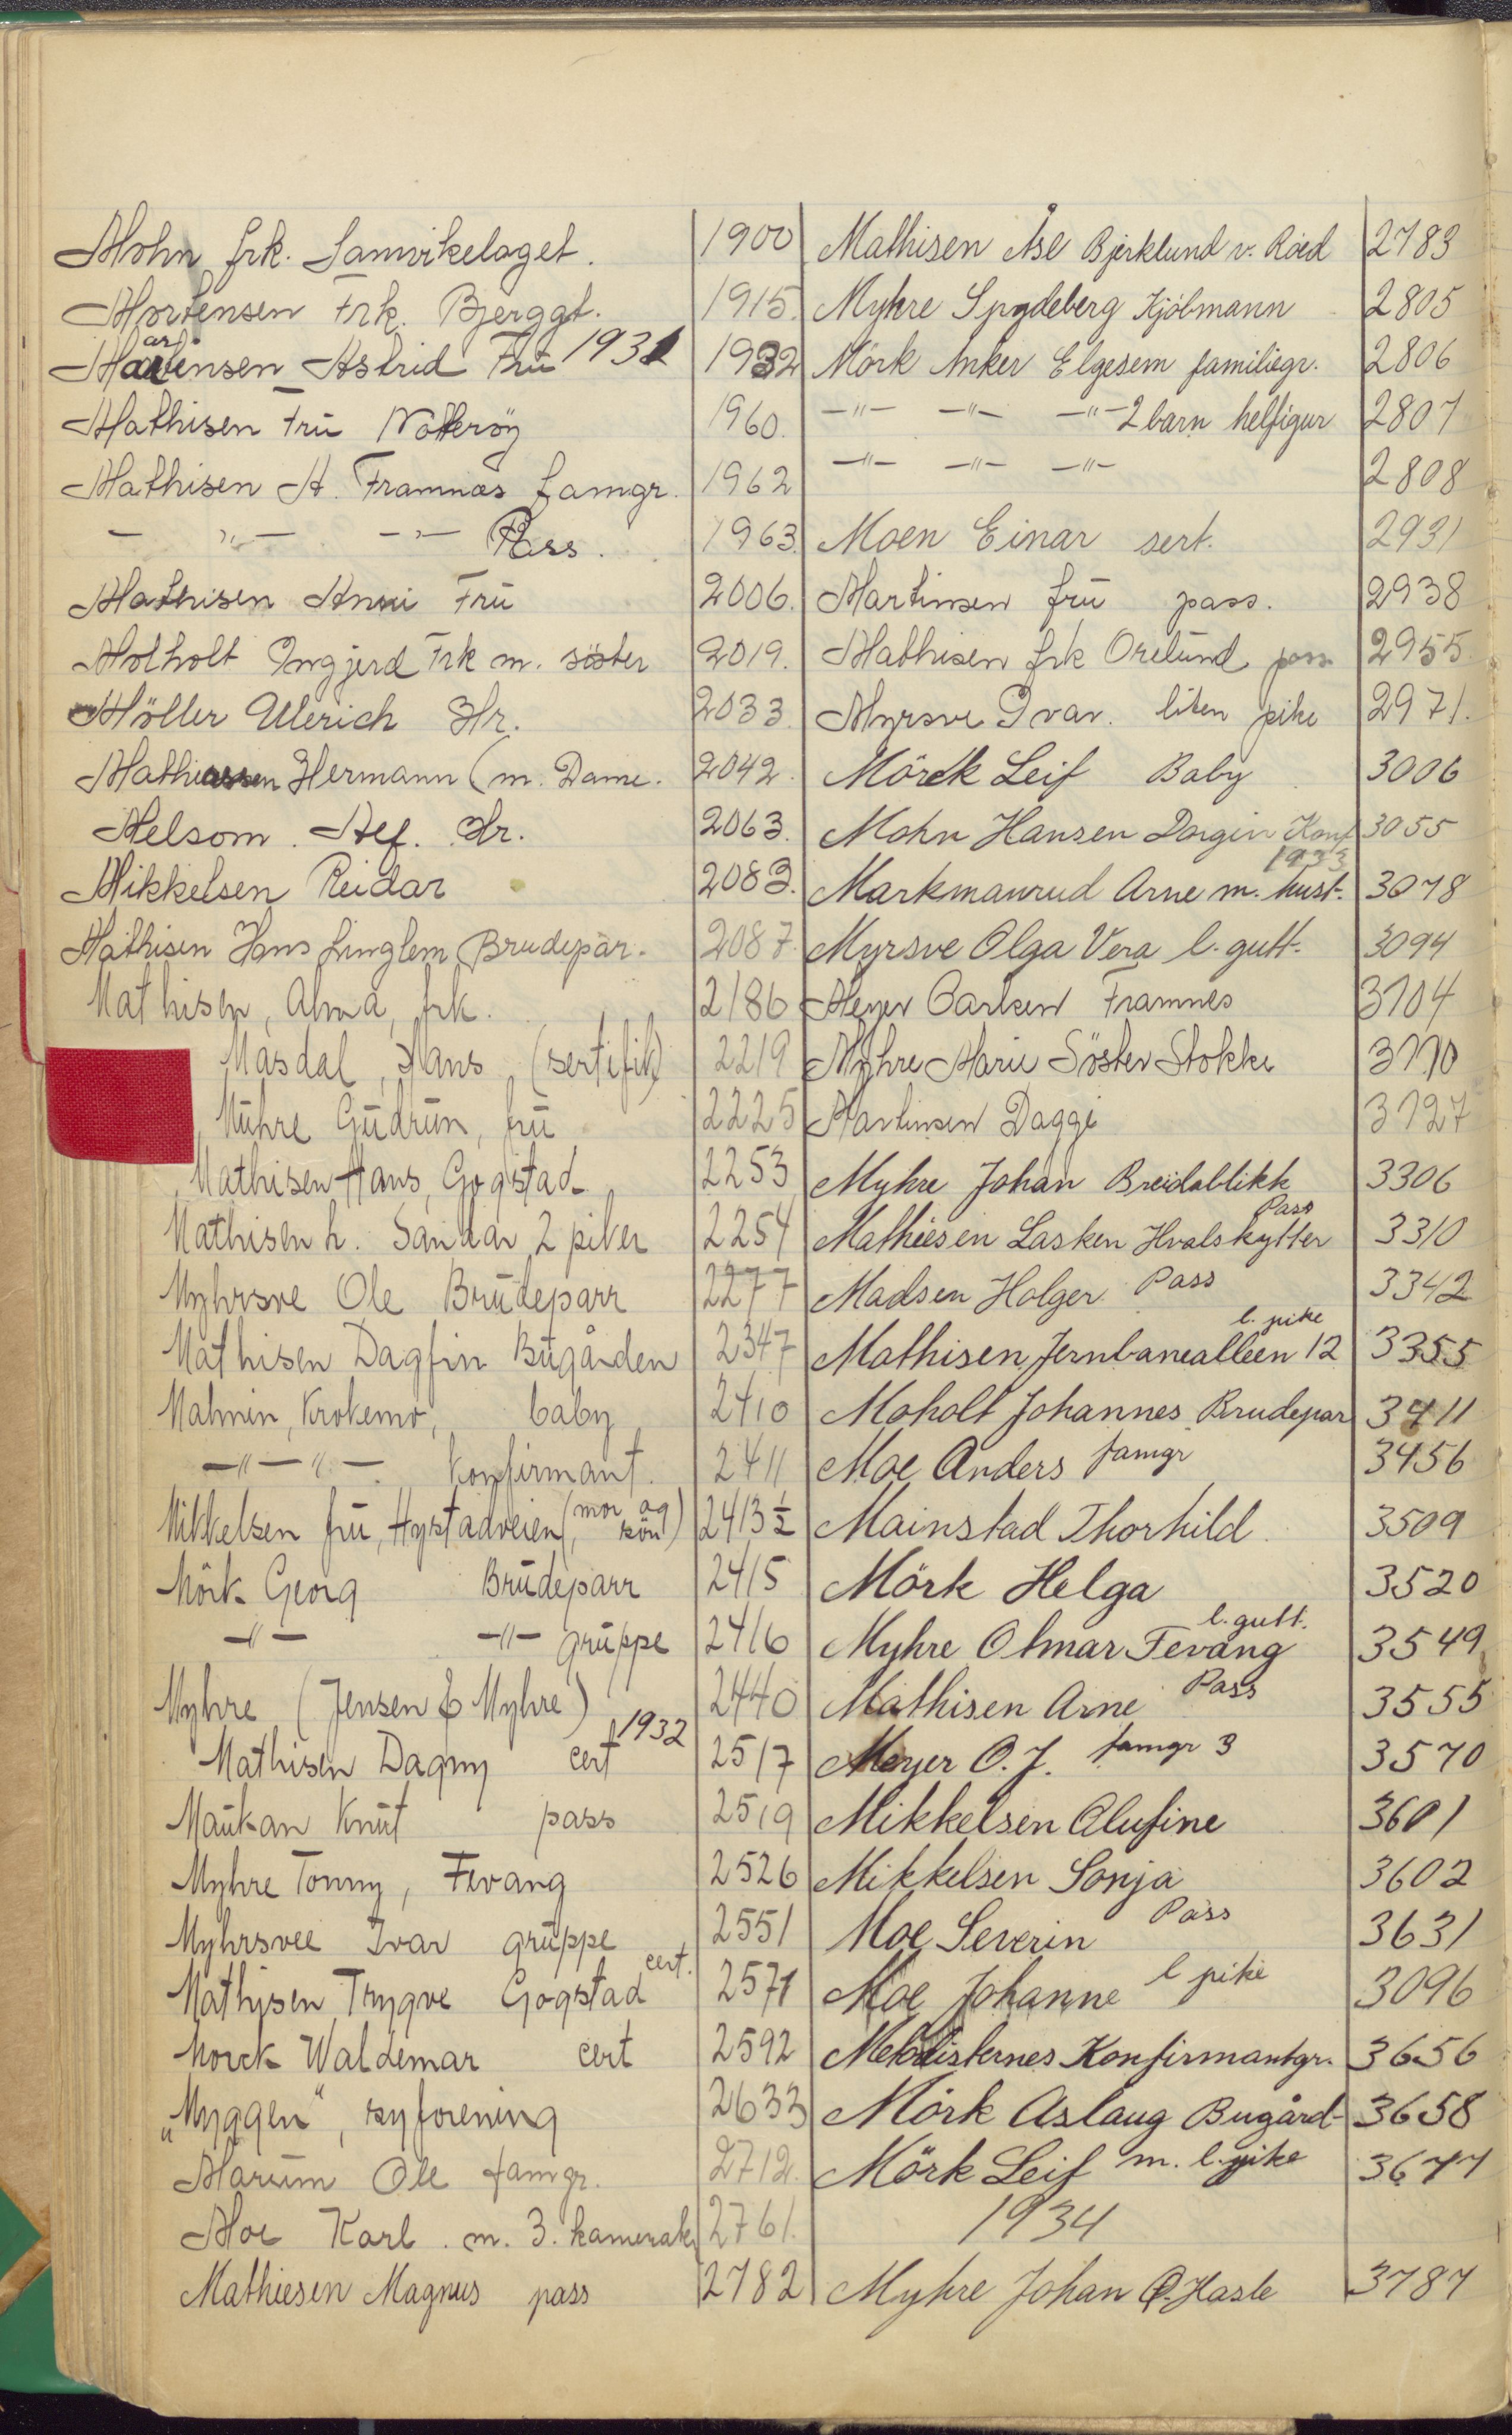 Mohn frk. Sanvikelaget. 1900
Mortensen Frk. Bjerggt. 1915.
Martensen Astrid Frü 1931 1932
Mathisen Frü Nötteröy 1960.
Mathisen A. Framnæs famgr. 1962
— " — — " — Pass. 1963.
Mathisen Anni Frü 2006.
Moholt Ingjerd Frk m. söster 2019.
Möller Ulerich Hr. 2033.
Mathiassen Hermann (m. Dame. 2042.
Melsom. Alf. Hr. 2063.
Mikkelsen Reidar 2083.
Mathisen Hans Linglem Brudepar. 2087.
Mathisen, Alma, frk. 2186
Masdal, Hans, (sertifik) 2219
Mühre Güdrün, frü 2225
Mathisen Hans, Gogstad 2253
Mathisen h. Sandar 2 piker 2254
Myhrsve Ole Brüdeparr 2277
Mathisen Dagfin Bügården 2347
Malmin, Krokemo, baby 2410
—"—"— Konfirmant. 2411
Mikkelsen frü, Hystadveien (mor og sön) 2413 ½
Mörk Georg Brüdeparr 2415
—"— —"— grüppe 2416
Myhre (Jensen & Myhre) 2440
Mathisen Dagny cert 1932 2517
Maükan Knüt pass 2519
Myhre Tonny, Fevang 2526
Myhrsvee Ivar grüppe 2551
Mathisen Trygve Gogstad cert. 2571
Morck Waldemar cert 2592
„Myggen“, syforening 2633
Marüm Ole famgr. 2712.
Moe Karl. m. 3. kamerater 2761.
Mathiesen Magnus pass 2782
Mathisen Åse Bjerklund v. Röed 2783
Myhre Spydeberg Kjöbmann 2805
Mörk Anker Elgesem familiegr. 2806
—"— —"— —"— 2 barn helfigur 2807
—"— —"— —"— 2808
Moen Einar sert. 2931
Martinsen frü pass. 2938
Mathisen frk Orelünd pass 2955.
Myrsve Ivar. liten pike 2971.
Mörck Leif Baby 3006
Mohn Hansen Dagin Konf 3055
1933
Markmanrud Arne m. hust. 3078
Myrsve Olga Vera l. gutt. 3094
Meyer Carlsen Framnes 3104
Myhre Marie Söster Stokke 3110
Martinsen Daggi 3127
Myhre Johan Breidablikk 3306
Mathiesen Lasken Hvalskytter Pass 3310
Madsen Holger Pass 3342
Mathisen Jernbanealleen 12 l. pike 3355
Moholt Johannes Brudepar 3411
Moe Anders famgr 3456
Mainstad Thorhild 3509
Mörk Helga 3520
Myhre Olmar Fevang l. gutt. 3549
Mathisen Arne Pass 3555
Meyer O. J. famgr 3 3570
Mikkelsen Alufine 3601
Mikkelsen Sonja 3602
Moe Severin Pass 3631
Moe Johanne l pike 3096
Metodisternes Konfirmantgr. 3656
Mörk Aslaug Bugård- 3658
Mörk Leif m. l. pike 3677
1934
Myhre Johan Hasle 3787